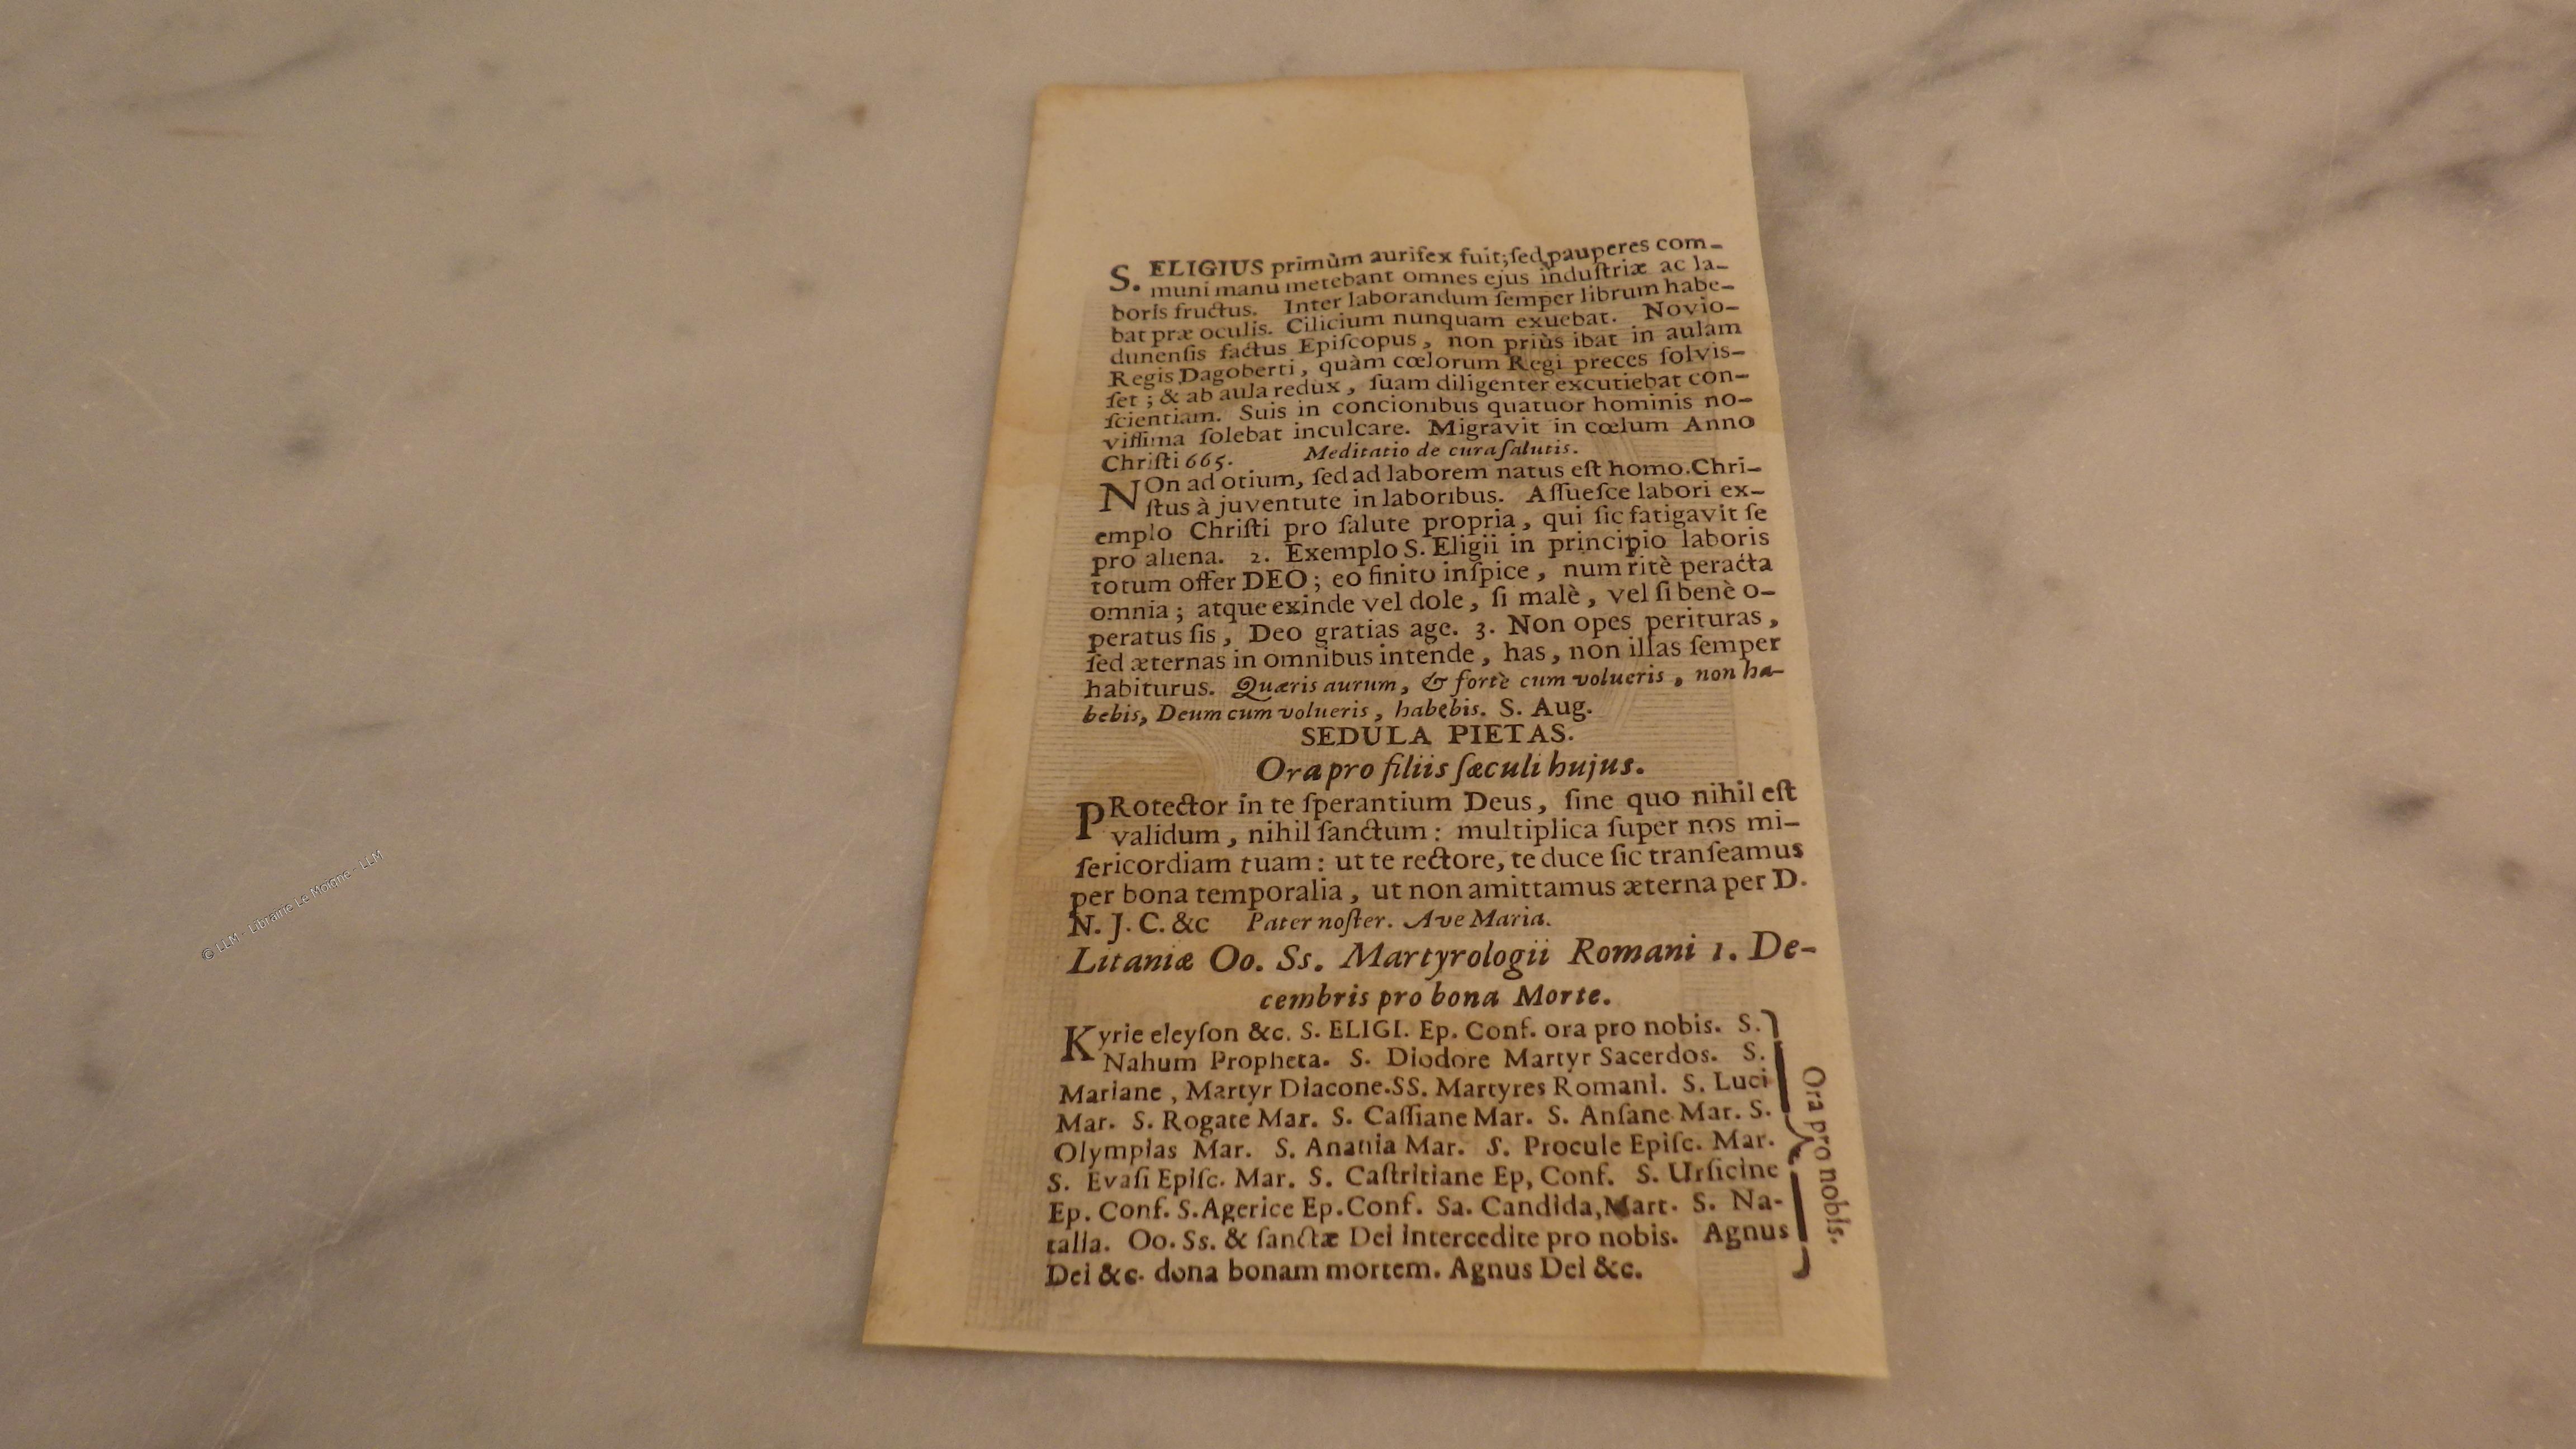 S. ELIGIUS primùm aurifex fuit; ſed pauperes com-
muni manu metebant omnes ejus induſtriæ ac la-
boris fructus. Inter laborandum ſemper librum habe-
bat præ oculis. Cilicium nunquam exuebat. Novio-
dunenſis factus Epiſcopus, non priùs ibat in aulam
Regis Dagoberti, quàm cœlorum Regi preces ſolviſ-
ſet; & ab aula redux, ſuam diligenter excutiebat con-
ſcientiam. Suis in concionibus quatuor hominis no-
viſſima ſolebat inculcare. Migravit in cœlum Anno
Chriſti 665. Meditatio de cura ſalutis.
NOn ad otium, ſed ad laborem natus eſt homo. Chri-
ſtus à juventute in laboribus. Aſſueſce labori ex-
emplo Chriſti pro ſalute propria, qui ſic fatigavit ſe
pro aliena. 2. Exemplo S. Eligii in principio laboris
totum offer DEO; eo finito inſpice, num ritè peracta
omnia; atque exinde vel dole, ſi malè, vel ſi benè o-
peratus ſis, Deo gratias age. 3. Non opes perituras,
ſed æternas in omnibus intende, has, non illas ſemper
habiturus. Quæris aurum, & fortè cum volueris, non ha-
bebis, Deum cum volueris, habebis. S. Aug.
SEDULA PIETAS.
Ora pro filiis ſæculi hujus.
PRotector in te ſperantium Deus, ſine quo nihil eſt
validum, nihil ſanctum: multiplica ſuper nos mi-
ſericordiam tuam: ut te rectore, te duce ſic tranſeamus
per bona temporalia, ut non amittamus æterna per D.
N. J. C. &c Pater noſter. Ave Maria.
Litaniæ Oo. Ss. Martyrologii Romani 1. De-
cembris pro bona Morte.
Kyrie eleyſon &c. S. ELIGI. Ep. Conf. ora pro nobis. S.
Nahum Propheta. S. Diodore Martyr Sacerdos. S.
Mariane, Martyr Diacone. SS. Martyres Romani. S. Luci
Mar. S. Rogate Mar. S. Caſſiane Mar. S. Anſane Mar. S.
Olympias Mar. S. Anania Mar. S. Procule Epiſc. Mar.
S. Evaſi Epiſc. Mar. S. Caſtritiane Ep, Conf. S. Urſicine
Ep. Conf. S. Agerice Ep. Conf. Sa. Candida, Mart. S. Na-
talia. Oo. Ss. & ſanctæ Dei intercedite pro nobis. Agnus
Dei &c. dona bonam mortem. Agnus Dei &c.
Ora pro nobis.
© LLM - Librairie Le Moigne - LLM